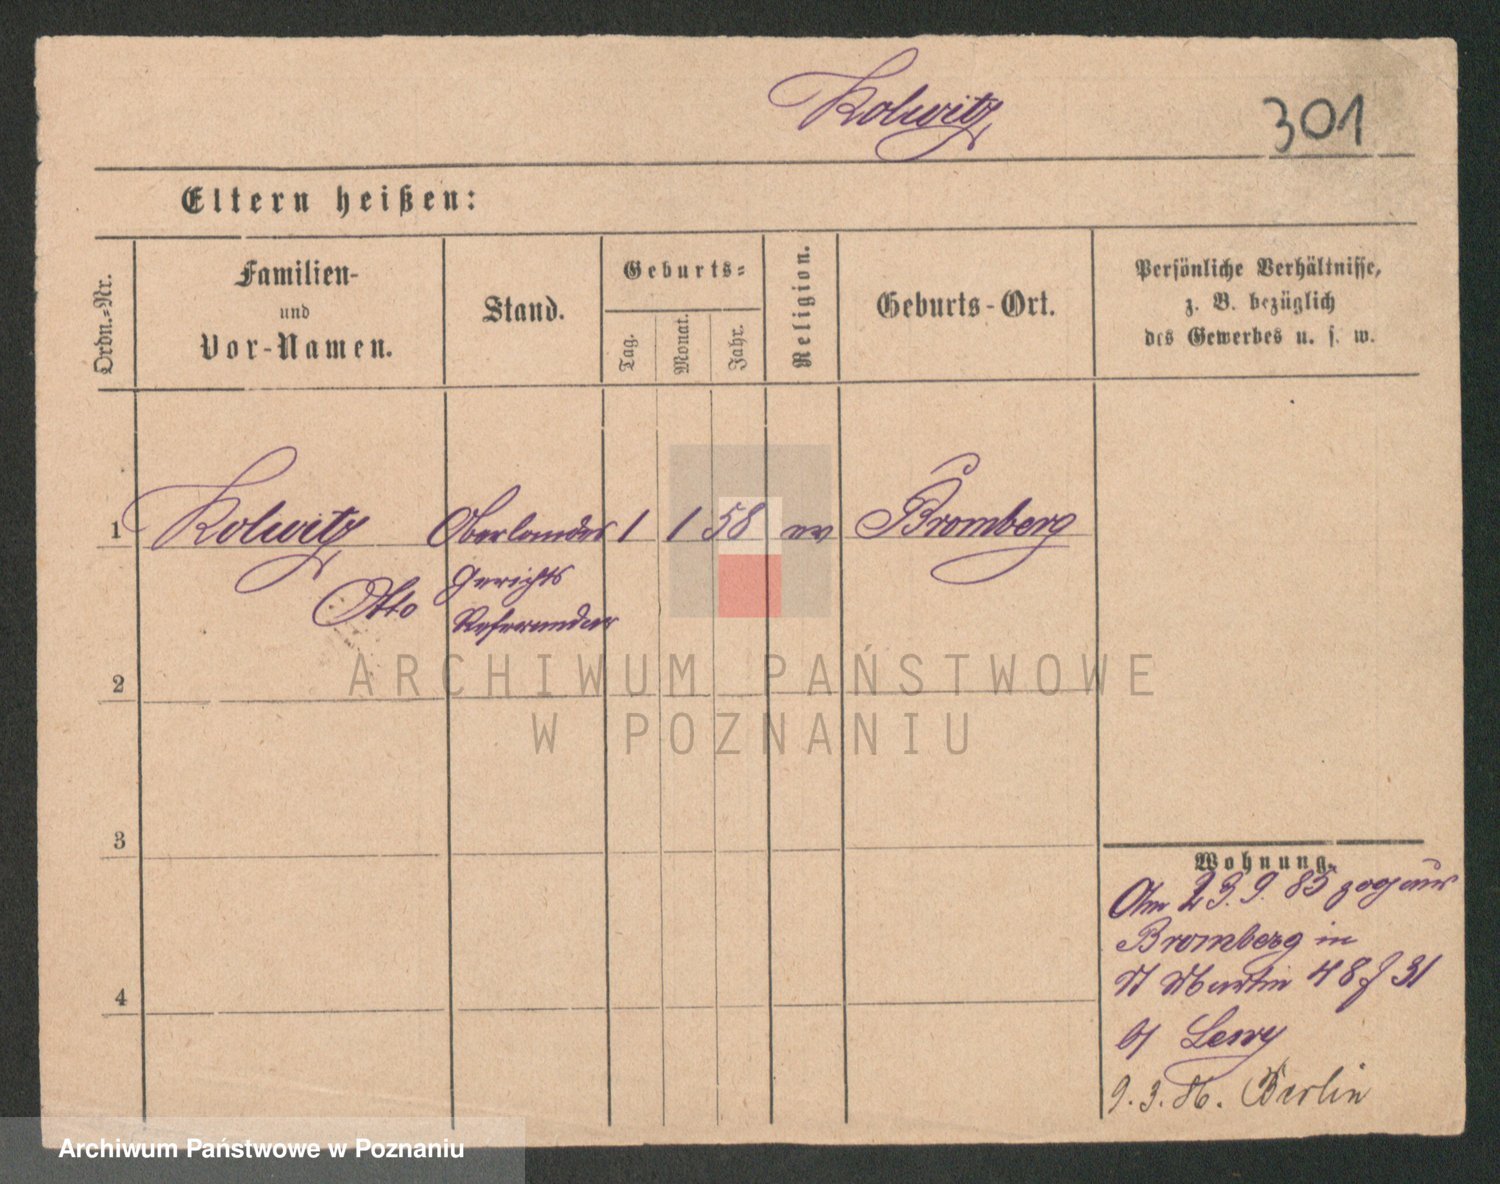 Kolwitz
301
Eltern heißen:
Ordn.-Nr.
Familien-
und
Vor-Namen.
Stand.
Geburts-
Tag.
Monat.
Jahr.
Religion.
Geburts-Ort.
Persönliche Verhältnisse,
z. B. bezüglich
des Gewerbes u. s. w.
1 Kolwitz Oberlandes 1 1 58 ev Bromberg
Otto Gerichts
Referendar
2
3
4
Wohnung.
Am 23. 9. 85 zog aus
Bromberg in
St Martin 48 31
b/ Lewy
9. 3. 86. Berlin
ARCHIWUM PAŃSTWOWE
W POZNANIU
Archiwum Państwowe w Poznaniu